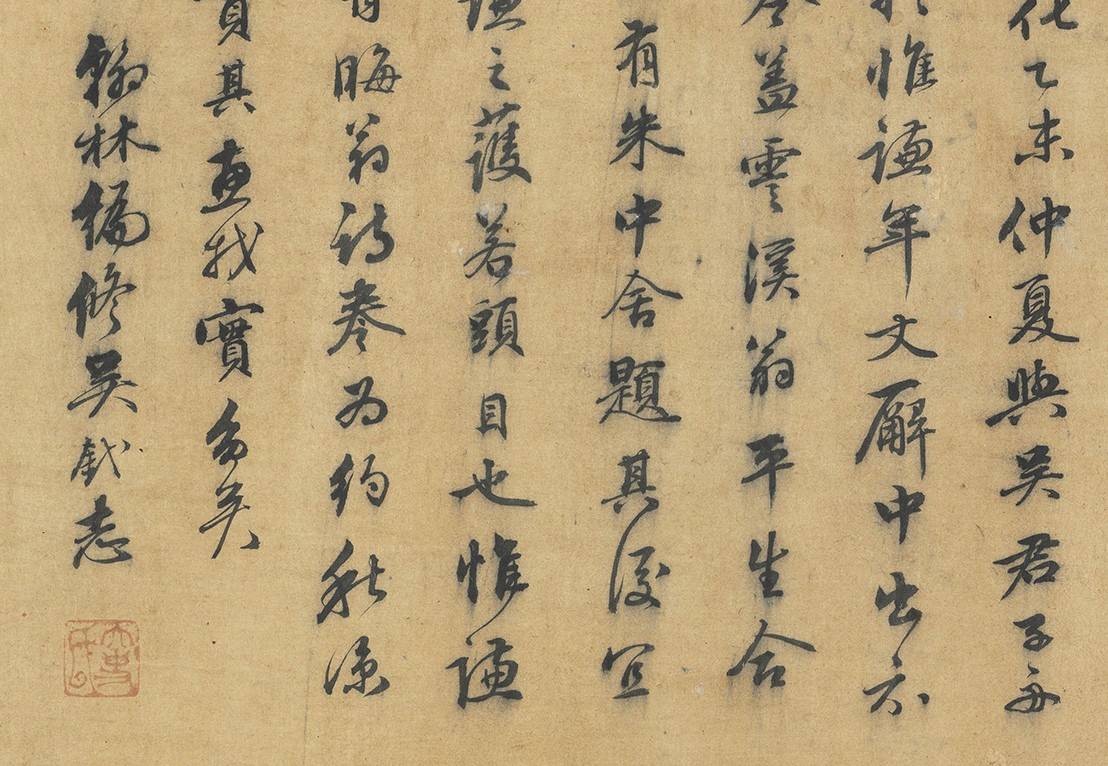 化乙未仲夏與吳君子
於惟謙年丈廨中出示
卷蓋雲溪翁平生合
有朱中舍題其後宜
謙之護若頭目也惟謙
晦翁詩卷為約秋涼
其惠我實多矣
翰林編修吳釴志